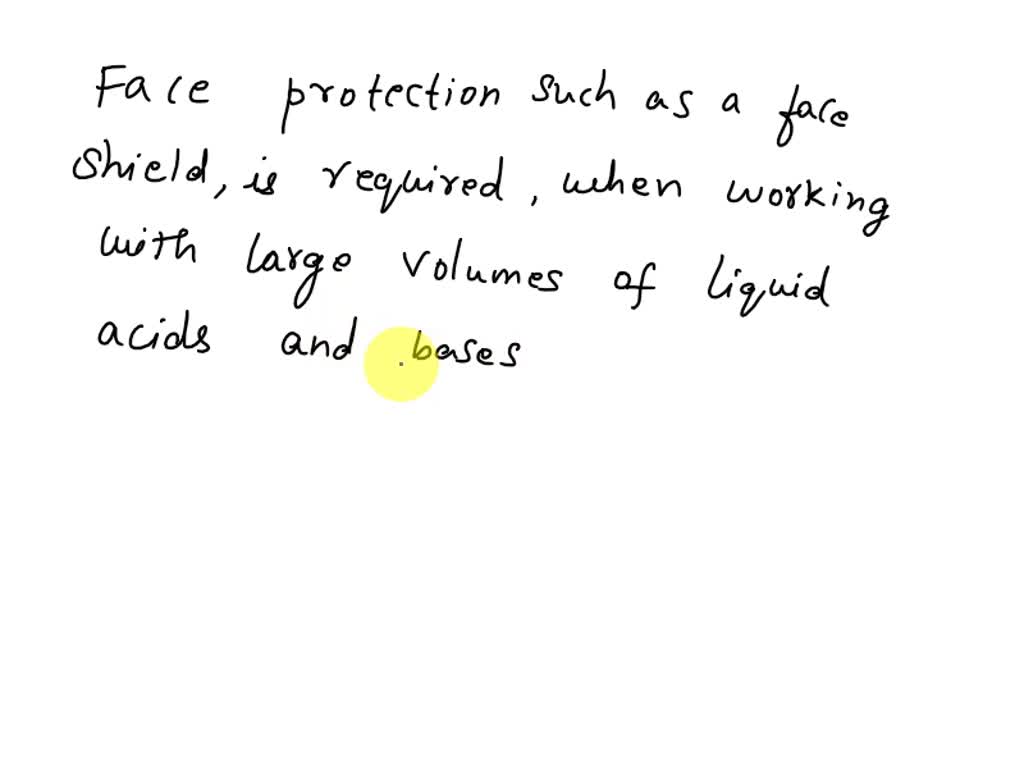 Face protection such as a face
shield, is required, when working
with large volumes of liquid
acids and bases